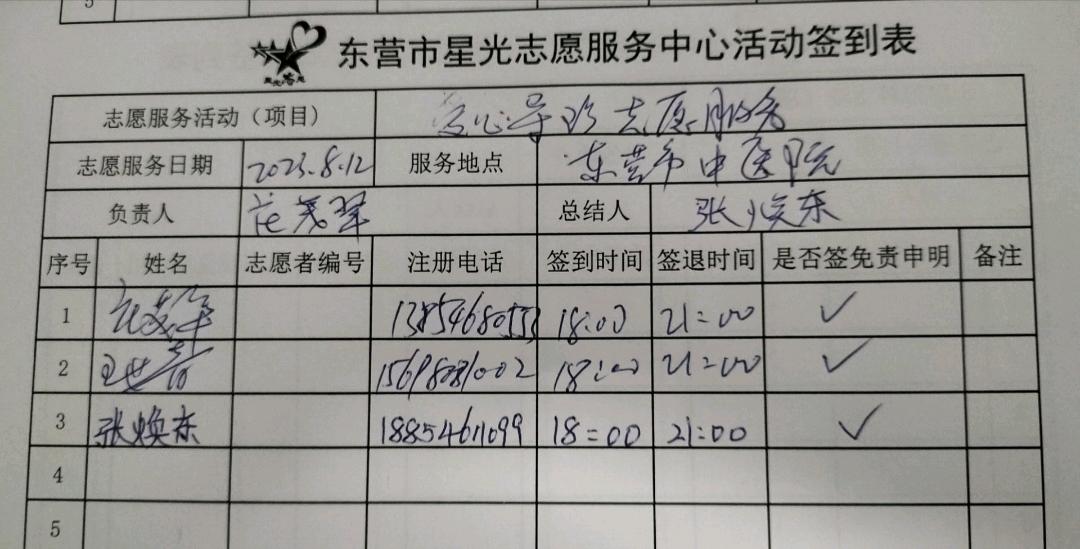 5
东营市星光志愿服务中心活动签到表
志愿服务活动（项目） 爱心导诊志愿服务
志愿服务日期 2023.8.12 服务地点 东营市中医院
负责人 总结人 张焕东
序号 姓名 志愿者编号 注册电话 签到时间 签退时间 是否签免责申明 备注
1 13854680553 18:00 21:00 ✓
2 18:00 21:00 ✓
3 张焕东 18854611099 18:00 21:00 ✓
4
5